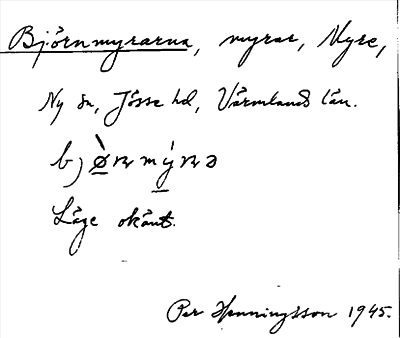 Björnmyrarna, myrar, Myre,
Ny sn, Jösse hd, Värmlands län.
Läge okänt.
Per Henningsson 1945.